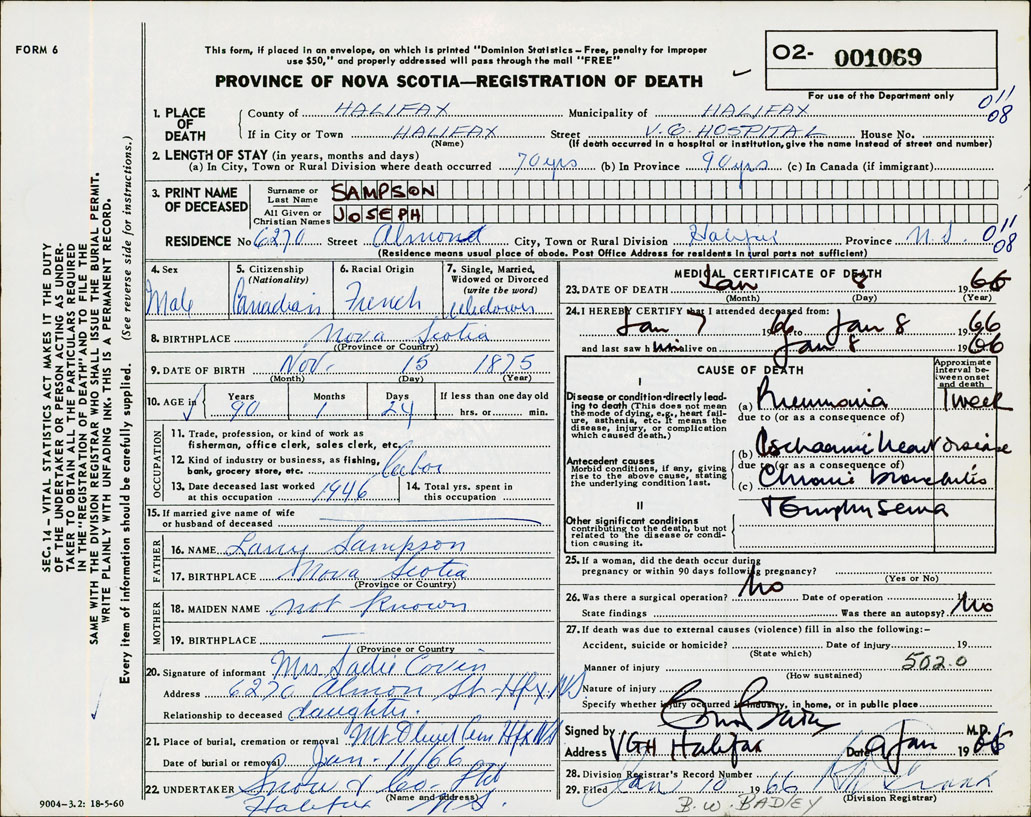 FORM 6
This form, if placed in an envelope, on which is printed "Dominion Statistics – Free, penalty for improper
use $50," and properly addressed will pass through the mail "FREE"
PROVINCE OF NOVA SCOTIA—REGISTRATION OF DEATH
O2- 001069
For use of the Department only
011
08
1. PLACE OF DEATH
County of HALIFAX Municipality of HALIFAX
If in City or Town HALIFAX Street V.G. HOSPITAL House No.
(Name) (If death occurred in a hospital or institution, give the name instead of street and number)
2. LENGTH OF STAY (in years, months and days)
(a) In City, Town or Rural Division where death occurred 70 yrs (b) In Province 90 yrs (c) In Canada (if immigrant)
3. PRINT NAME OF DECEASED
Surname or Last Name SAMPSON
All Given or Christian Names JOSEPH
RESIDENCE No 6270 Street Almond City, Town or Rural Division Halifax Province N.S. 011
08
(Residence means usual place of abode. Post Office Address for residents in rural parts not sufficient)
4. Sex
Male
5. Citizenship
(Nationality)
Canadian
6. Racial Origin
French
7. Single, Married,
Widowed or Divorced
(write the word)
widower
8. BIRTHPLACE Nova Scotia
(Province or Country)
9. DATE OF BIRTH Nov. 15 1875
(Month) (Day) (Year)
10. AGE in Years 90 Months 1 Days 24 If less than one day old
hrs. or min.
OCCUPATION
11. Trade, profession, or kind of work as
fisherman, office clerk, sales clerk, etc.
12. Kind of industry or business, as fishing,
bank, grocery store, etc. labor
13. Date deceased last worked
at this occupation 1946
14. Total yrs. spent in
this occupation
15. If married give name of wife
or husband of deceased
FATHER
16. NAME Larry Sampson
17. BIRTHPLACE Nova Scotia
(Province or Country)
MOTHER
18. MAIDEN NAME not known
19. BIRTHPLACE —
(Province or Country)
20. Signature of informant Mrs Sadie
Address 6270 Almon St. Hfx. N.S.
Relationship to deceased daughter.
21. Place of burial, cremation or removal Mt Olivet Cem Hfx NS
Date of burial or removal Jan. 11/66
22. UNDERTAKER Snow & Co. Ltd
(Name and address)
Halifax N.S.
9004–3.2: 18-5-60
MEDICAL CERTIFICATE OF DEATH
23. DATE OF DEATH Jan 8 1966
(Month) (Day) (Year)
24. I HEREBY CERTIFY that I attended deceased from:
Jan 7 1966 to Jan 8 1966
and last saw him alive on Jan 8 1966
CAUSE OF DEATH
Approximate
interval be-
tween onset
and death
I
Disease or condition-directly lead-
ing to death (This does not mean
the mode of dying, e.g., heart failure,
asthenia, etc. It means the
disease, injury, or complication
which caused death.)
(a) Pneumonia 1 week
due to (or as a consequence of)
Antecedent causes
Morbid conditions, if any, giving
rise to the above cause, stating
the underlying condition last.
(b) Ischaemic heart disease
due to (or as a consequence of)
(c) Chronic bronchitis
II
Other significant conditions
contributing to the death, but not
related to the disease or condi-
tion causing it.
Emphysema
25. If a woman, did the death occur during
pregnancy or within 90 days following pregnancy?
(Yes or No)
26. Was there a surgical operation? No Date of operation
State findings Was there an autopsy? No
27. If death was due to external causes (violence) fill in also the following:–
Accident, suicide or homicide? Date of injury 19
(State which)
Manner of injury 502.0
(How sustained)
Nature of injury
Specify whether injury occurred in industry, in home, or in public place
Signed by M.D.
Address VGH Halifax Date 9 Jan 1966
28. Division Registrar's Record Number
29. Filed Jan 10 1966
(Division Registrar)
B.W. BADLEY
SEC. 14 – VITAL STATISTICS ACT MAKES IT THE DUTY
OF THE UNDERTAKER OR PERSON ACTING AS UNDER-
TAKER TO OBTAIN ALL THE PARTICULARS REQUIRED
IN THE "REGISTRATION OF DEATH" AND TO FILE THE
SAME WITH THE DIVISION REGISTRAR WHO SHALL ISSUE THE BURIAL PERMIT.
WRITE PLAINLY WITH UNFADING INK. THIS IS A PERMANENT RECORD.
Every item of information should be carefully supplied. (See reverse side for instructions.)